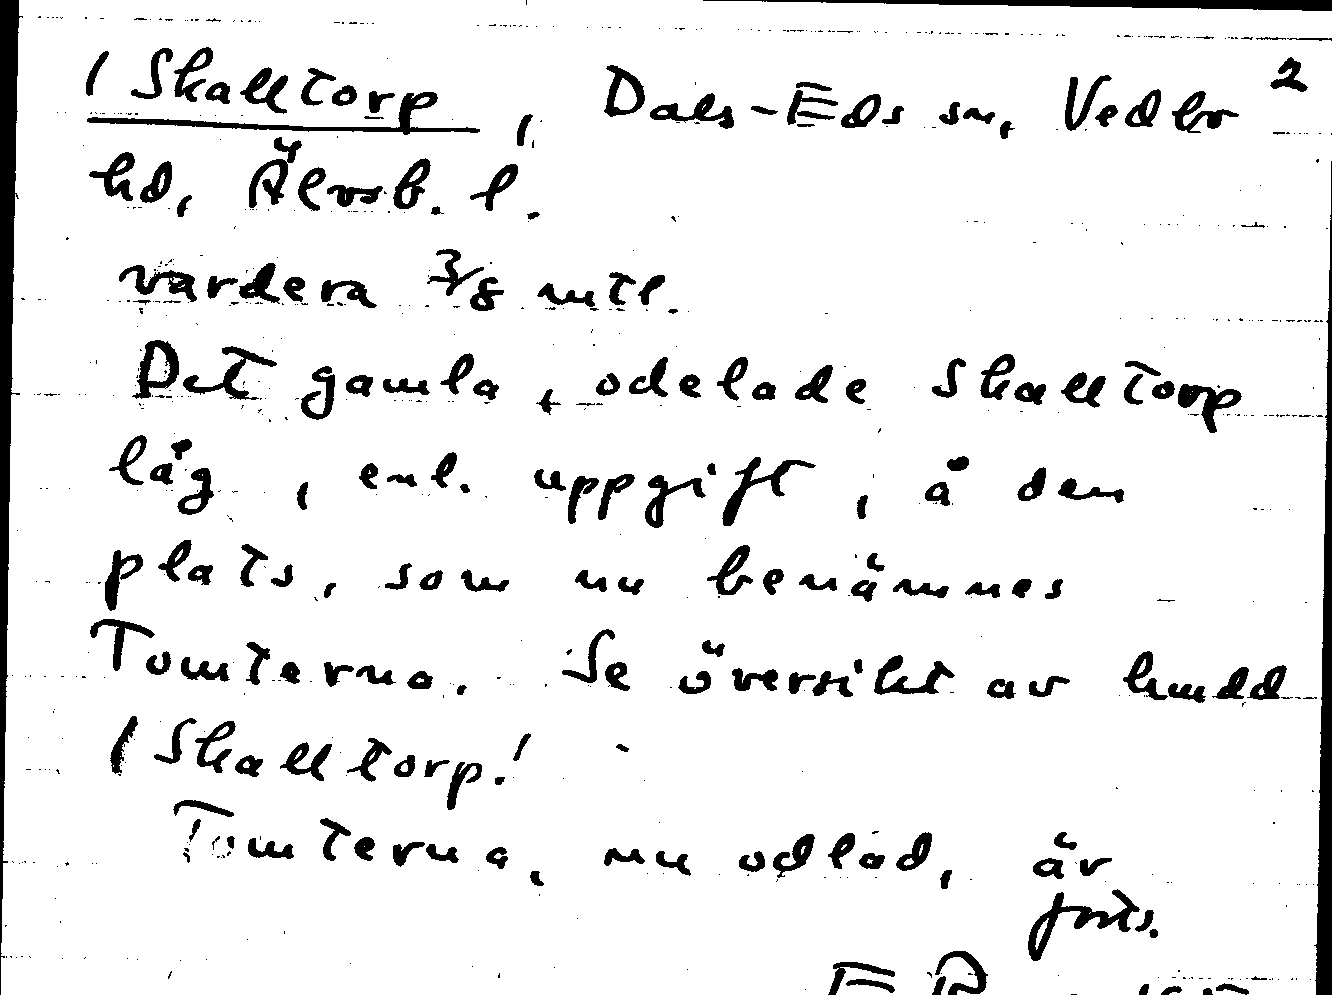 / Skalltorp, Dals-Eds sn, Vedbo 2
hd, Älvsb. l.
vardera 3/8 mtl.
Det gamla, odelade Skalltorp
låg, enl. uppgift, å den
plats, som nu benämnes
Tomterna. Se översikt av hmdd
/ Skalltorp!
Tomterna, nu odlad, är
forts.